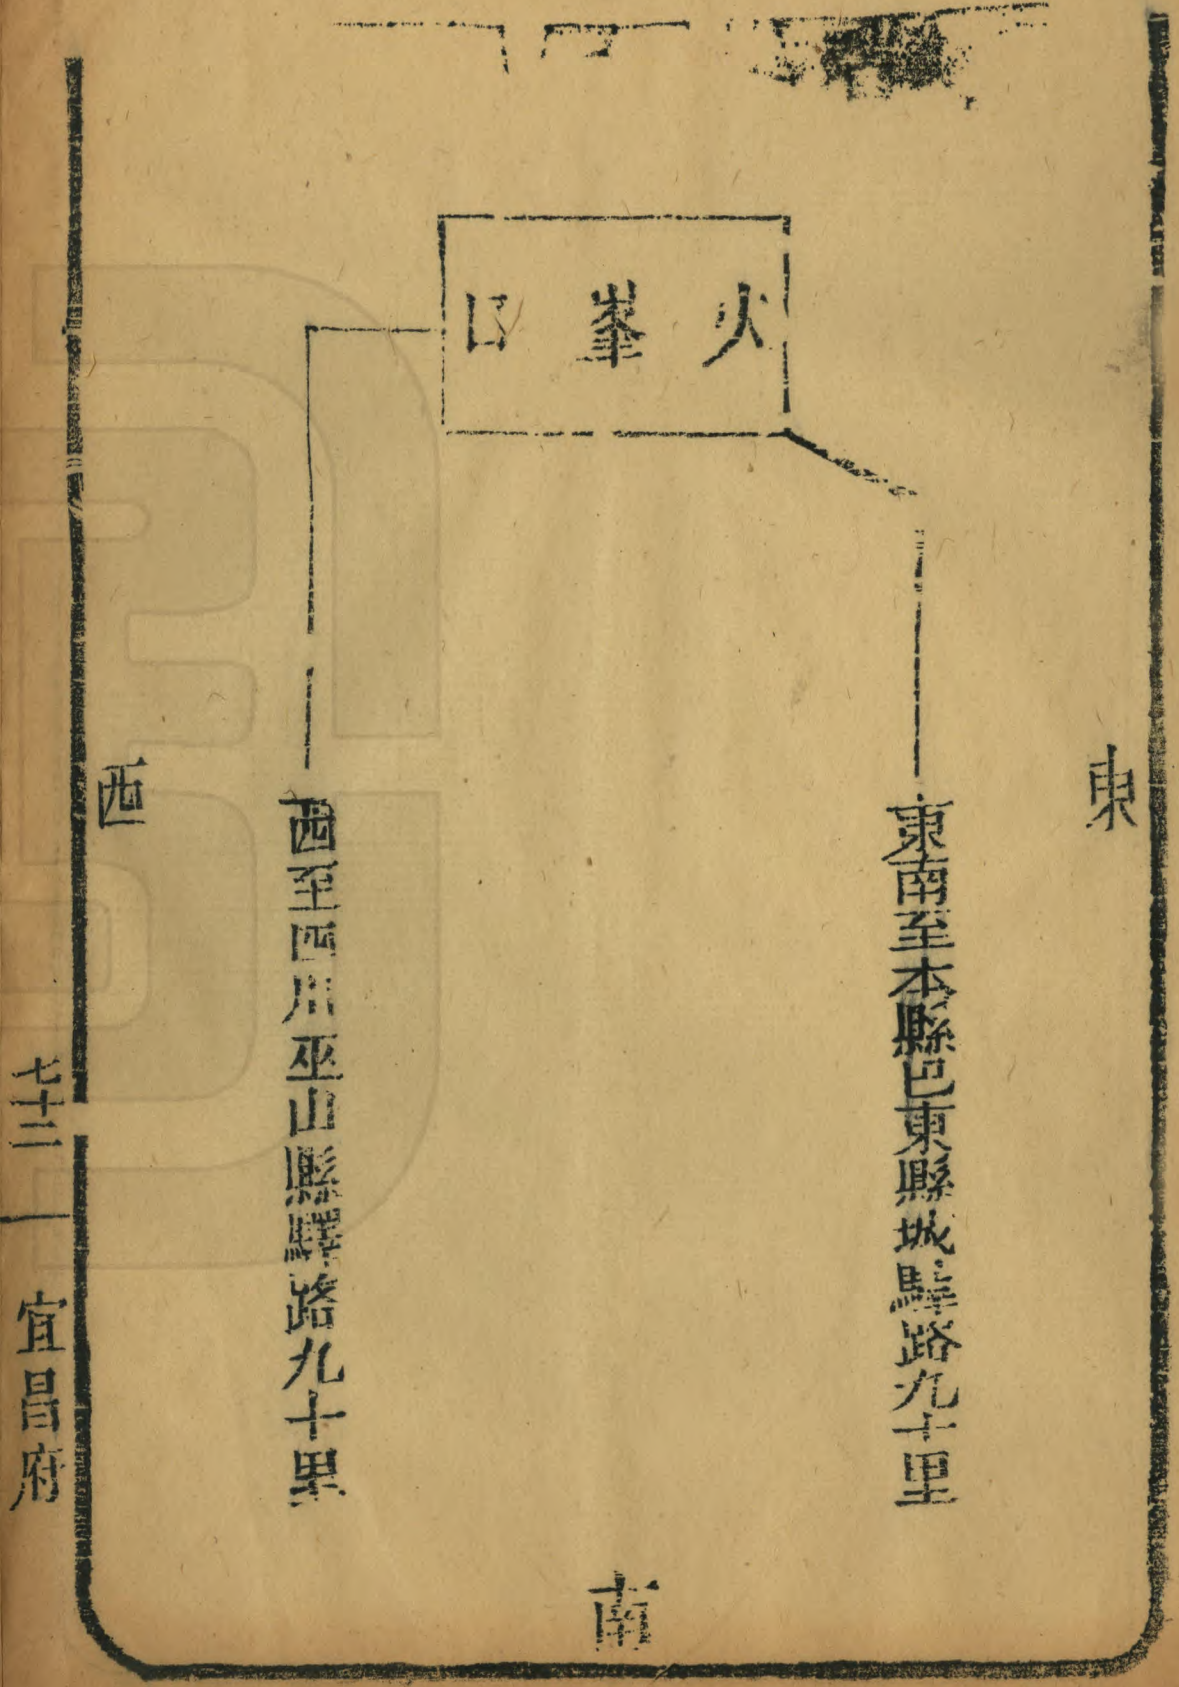 火峯口
東
東南至本縣巴東縣城驛路九十里
南
西至四川巫山縣驛路九十里
西
七十二
宜昌府